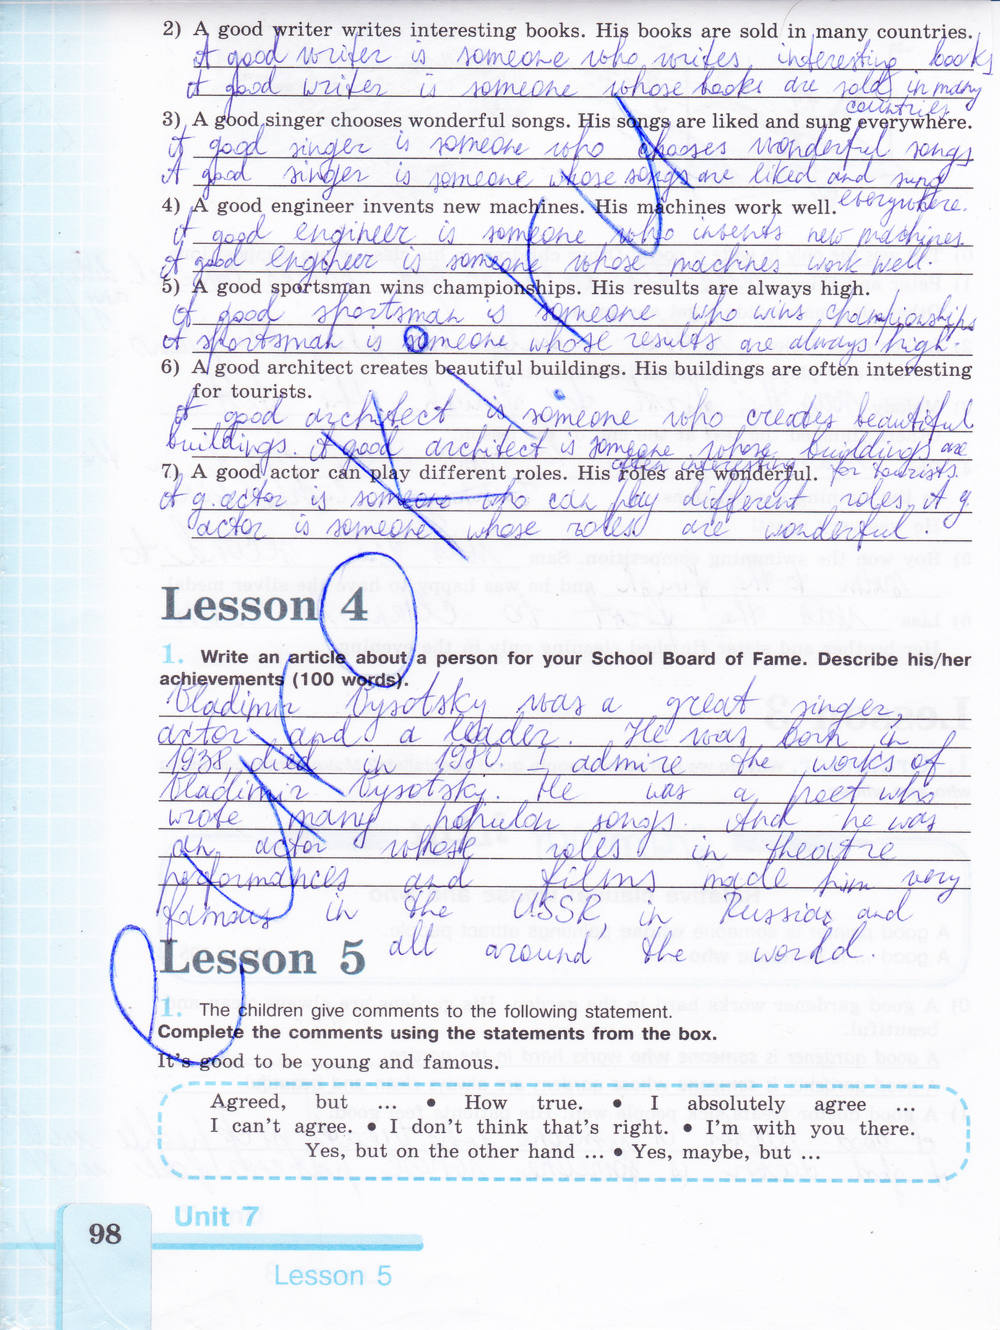 2) A good writer writes interesting books. His books are sold in many countries.
A good writer is someone who writes interesting books
A good writer is someone whose books are sold in many
countries.
3) A good singer chooses wonderful songs. His songs are liked and sung everywhere.
A good singer is someone who chooses wonderful songs
A good singer is someone whose songs are liked and sung
everywhere.
4) A good engineer invents new machines. His machines work well.
A good engineer is someone who invents new machines.
A good engineer is someone whose machines work well.
5) A good sportsman wins championships. His results are always high.
A good sportsman is someone who wins championships
A sportsman is someone whose results are always high.
6) A good architect creates beautiful buildings. His buildings are often interesting
for tourists.
A good architect is someone who creates beautiful
buildings. A good architect is someone whose buildings are
often interesting for tourists.
7) A good actor can play different roles. His roles are wonderful.
A g. actor is someone who can play different roles. A g.
actor is someone whose roles are wonderful.
Lesson 4
1. Write an article about a person for your School Board of Fame. Describe his/her
achievements (100 words).
Vladimir Vysotsky was a great singer,
actor and a leader. He was born in
1938, died in 1980. I admire the works of
Vladimir Vysotsky. He was a poet who
wrote many popular songs. And he was
an actor whose roles in theatre
performances and films made him very
famous in the USSR in Russia and
all around the world.
Lesson 5
1. The children give comments to the following statement.
Complete the comments using the statements from the box.
It's good to be young and famous.
Agreed, but ... • How true. • I absolutely agree ... .
I can't agree. • I don't think that's right. • I'm with you there.
Yes, but on the other hand ... • Yes, maybe, but ...
98
Unit 7
Lesson 5